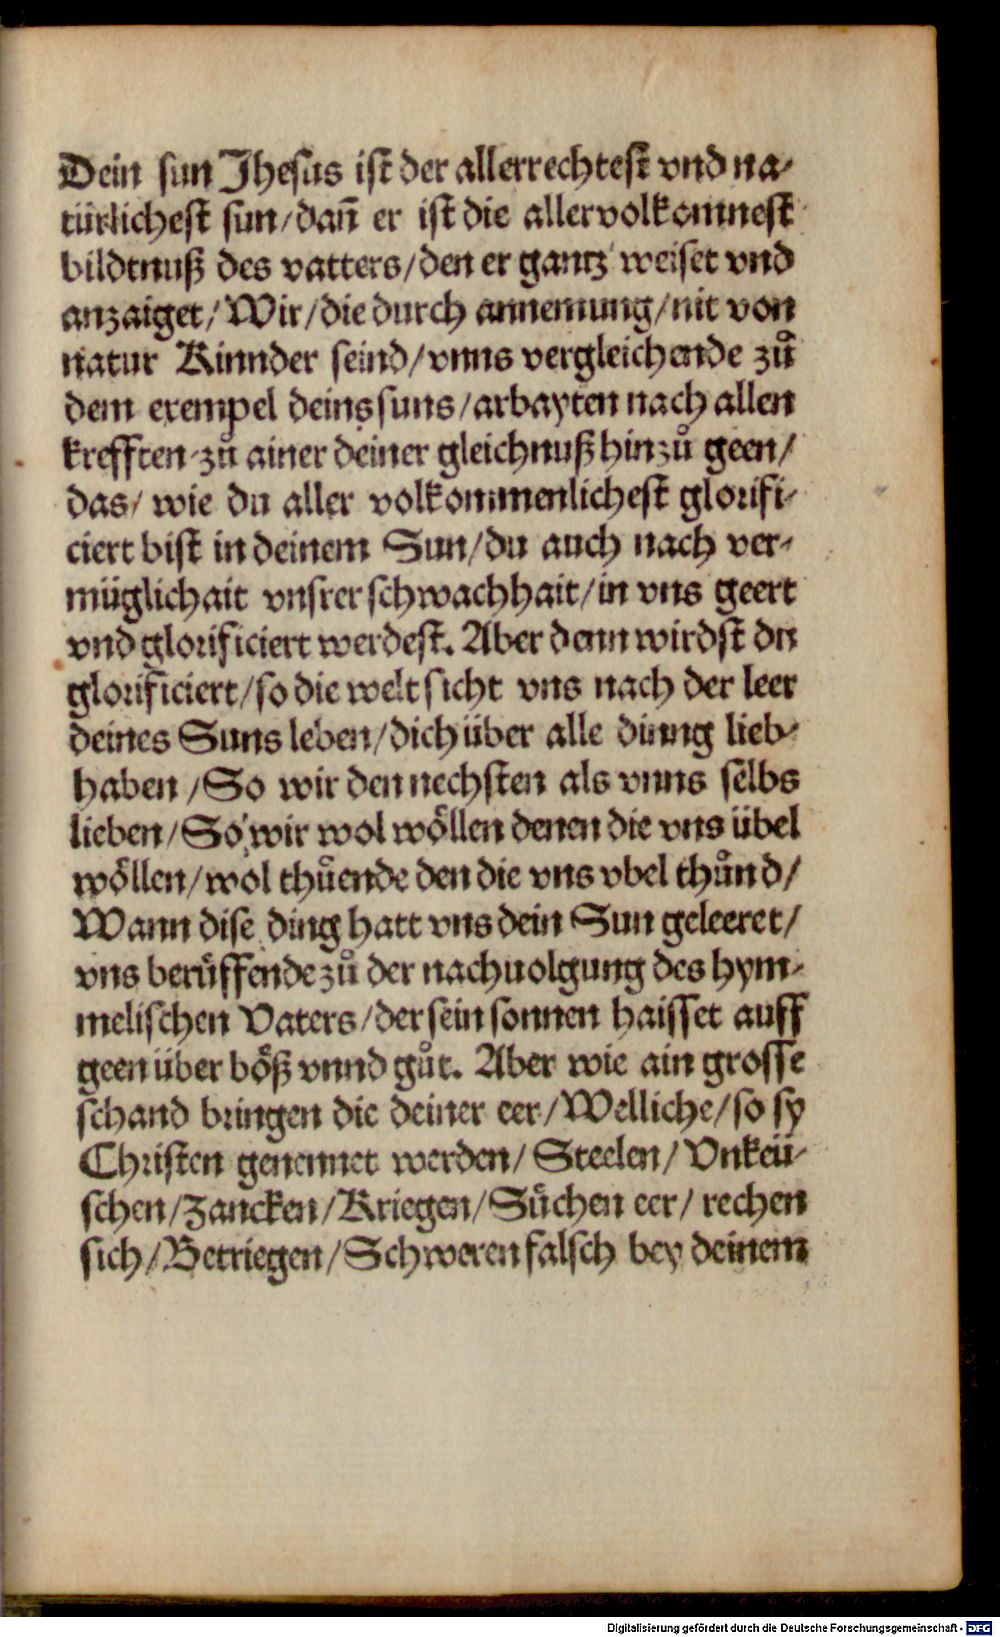 Dein sun Jhesus ist der allerrechtest vnd na-
türlichest sun/dañ er ist die allervolkomnest
bildtnuß des vatters/den er gantz weiset vnd
anzaiget/Wir/die durch annemung/nit von
natur Kinnder seind/vnns vergleichende zů
dem exempel deins suns/arbayten nach allen
krefften zů ainer deiner gleichnuß hinzů geen/
das/ wie du aller volkommenlichest glorifi-
ciert bist in deinem Sun/du auch nach ver-
müglichait vnsrer schwachhait/in vns geert
vnd glorificiert werdest. Aber denn wirdst du
glorificiert/so die welt sicht vns nach der leer
deines Suns leben/dich über alle dinng lieb-
haben /So wir den nechsten als vnns selbs
lieben/So wir wol wöllen denen die vns übel
wöllen/wol thůende den die vns vbel thůnd/
Wann dise ding hatt vns dein Sun geleeret/
vns berůffende zů der nachuolgung des hym-
melischen Vaters/der sein sonnen haisset auff
geen über böß vnnd gůt. Aber wie ain grosse
schand bringen die deiner eer/Welliche/so sy
Christen genennet werden/ Steelen/ Vnkeü-
schen/Zancken/Kriegen/Sůchen eer/ rechen
sich/Betriegen/Schweren falsch bey deinem
Digitalisierung gefördert durch die Deutsche Forschungsgemeinschaft - DFG